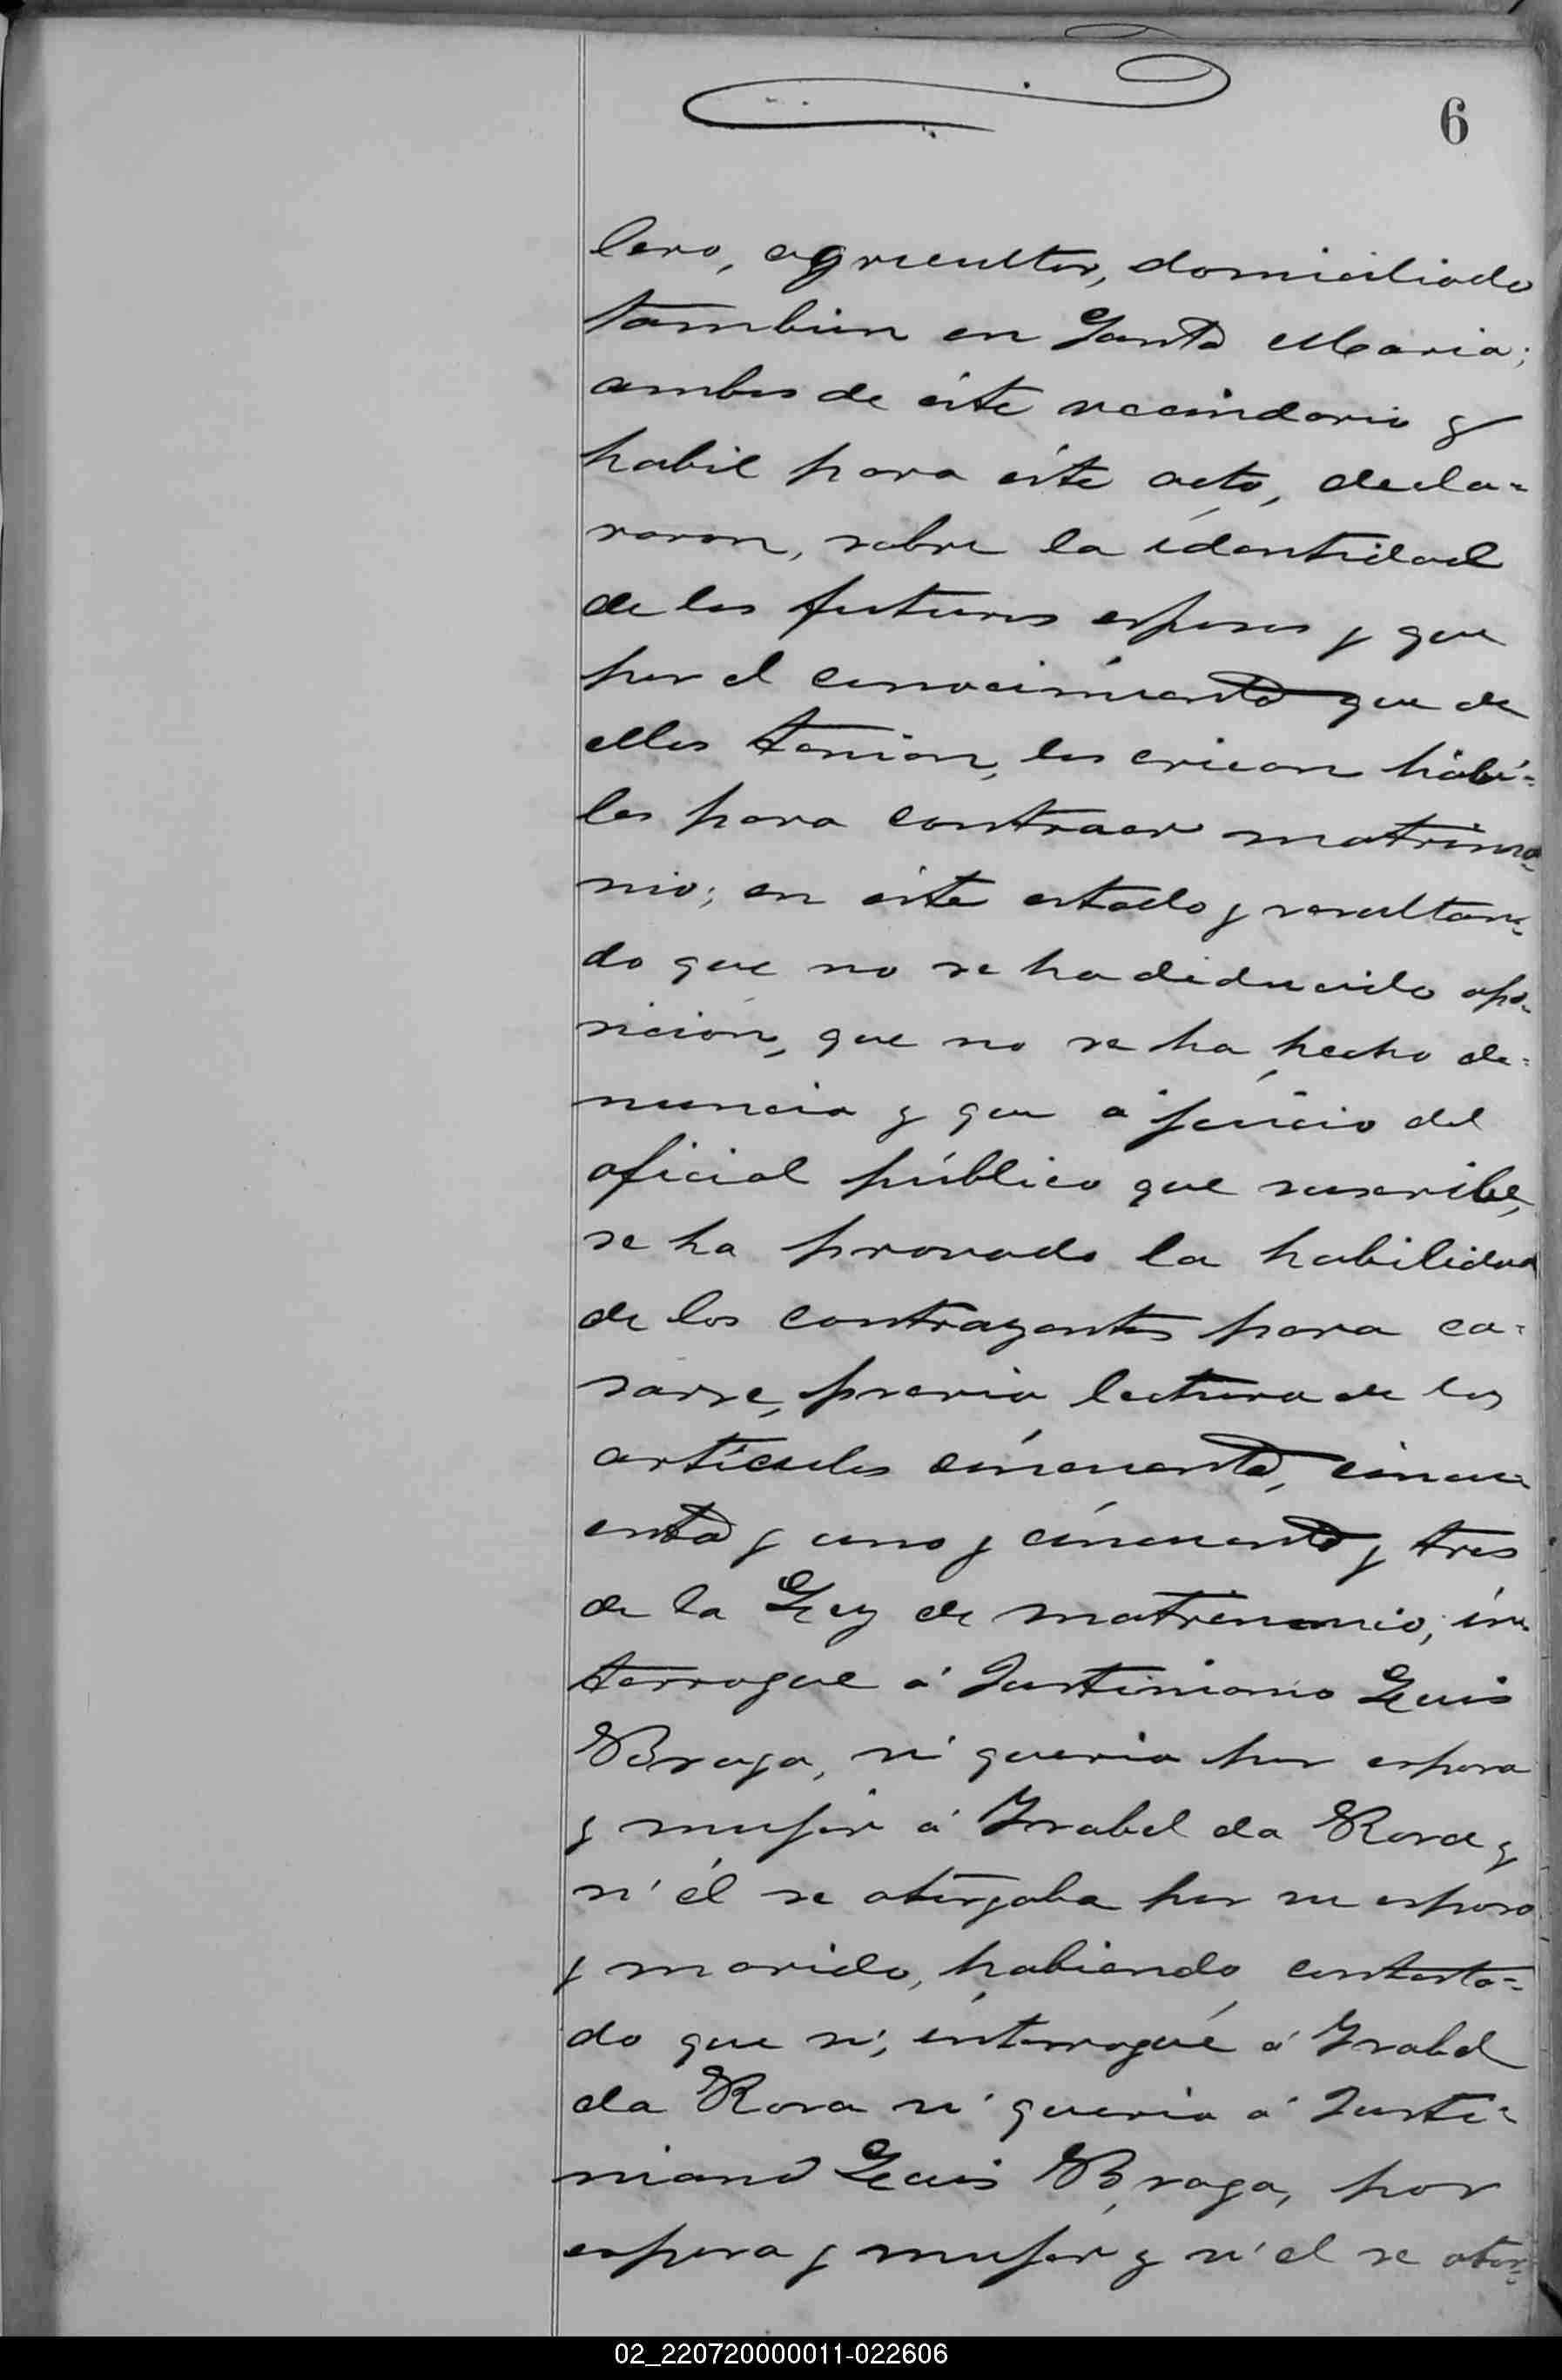 6
lero, agricultor, domiciliado
tambien en Santa Maria;
ambos de éste vecindario y
habil para éste acto, decla=
raron, sobre la identidad
de los futuros esposos y que
por el conocimiento que de
ellos tenian, los creian hábi=
les para contraer matrimo=
nio; en éste estado y resultan=
do que no se ha deducido opo=
sición, que no se ha hecho de=
nuncia y que á juicio del
oficial público que suscribe,
se ha provado la habilidad
de los contrayentes para ca=
sarse, previa lectura de los
artículos cincuenta, cincu=
enta y uno y cincuenta y tres
de la Ley de matrimonio, in=
terrogue á Justiniano Luis
Braga, si queria por esposa
y mujer á Isabel da Rosa y
si él se otorgaba por su esposo
y marido, habiendo contesta=
do que si, interrogué á Isabel
da Rosa si queria á Justi=
niano Luis Braga, por
esposa y mujer y si el se otor=
02_220720000011-022606